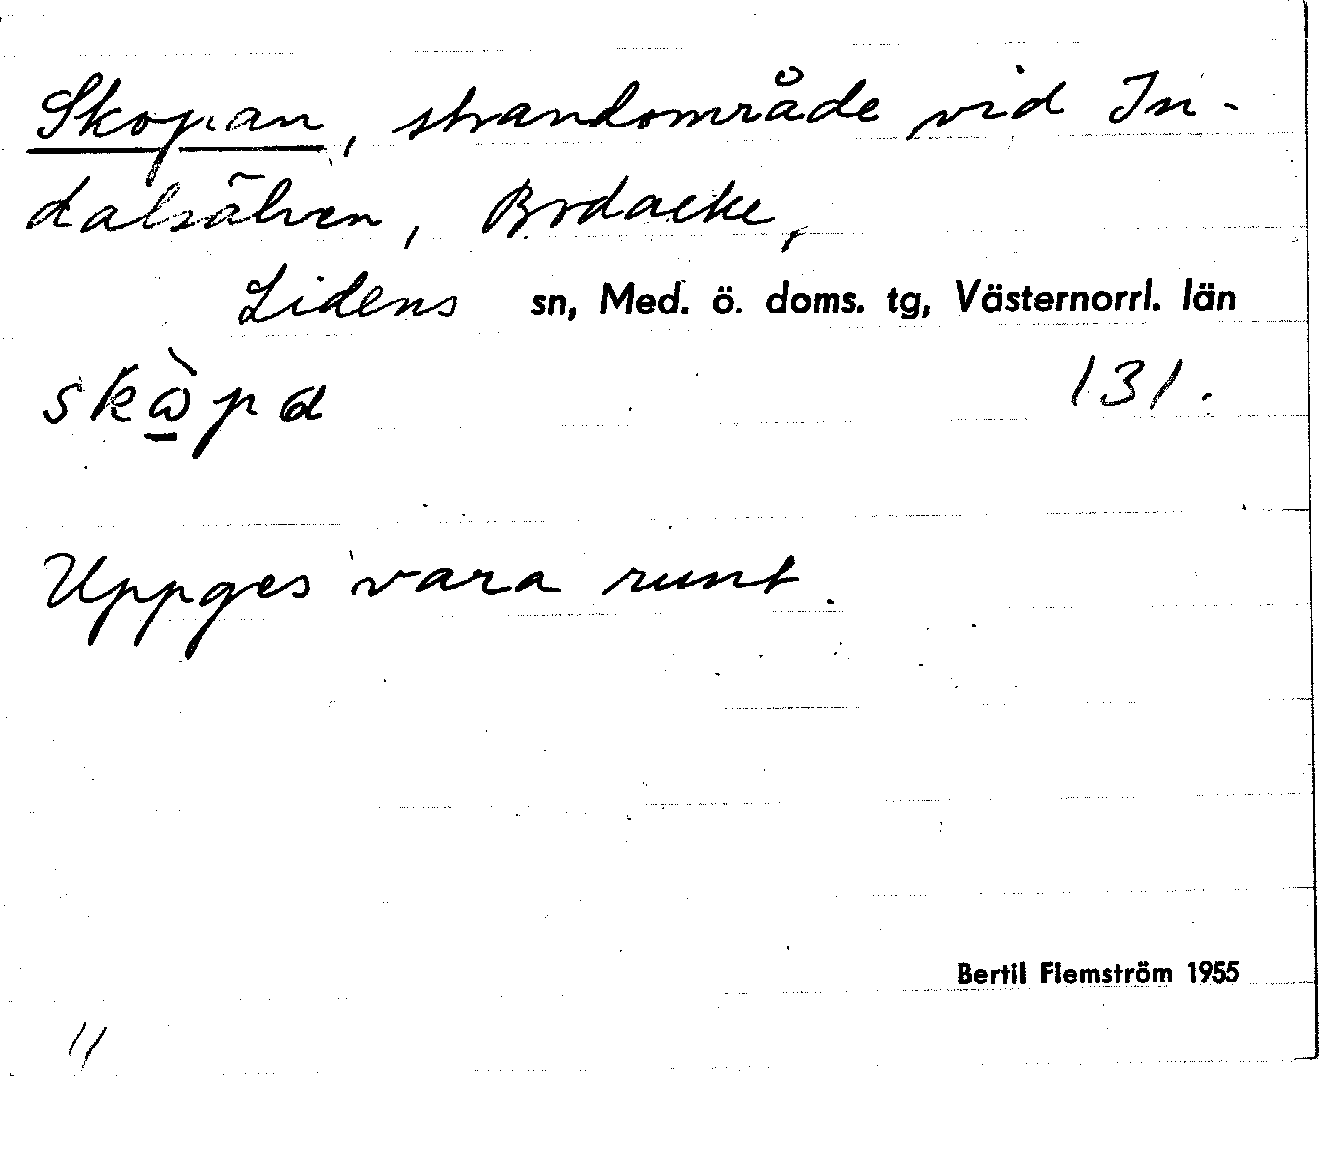 Skopan, strandområde vid In-
dalsälven, Bodacke,
Lidens sn, Med. ö. doms. tg, Västernorrl. län
131.
Uppges vara runt.
Bertil Flemström 1955